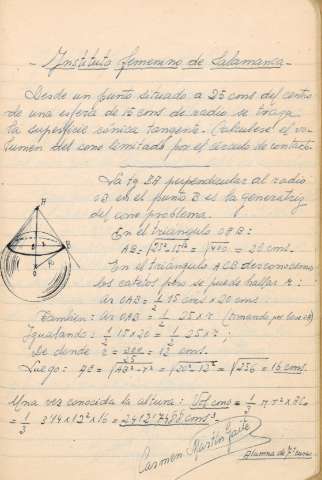 - Instituto femenino de Salamanca -
Desde un punto situado a 25 cms. del centro
de una esfera de 15 cms de radio se traza
la superficie cónica tangente. Calculese el vo-
lumen del cono limitado por el círculo de contacto.
La tg BA perpendicular al radio
OB en el punto B es la generatriz
del cono problema.
En el triangulo OAB:
AB = √25²-15² = √400 = 20 cms.
En el triángulo ACB desconocemos
los catetos pero se puede hallar r:
Ar OAB = 1/2 15 cms x 20 cms.
También: Ar OAB = 1/2 25 x r (tomando por base OA)
Igualando: 1/2 15 x 20 = 1/2 25 x r;
De donde r = 300/25 = 12 cms.
Luego: AC = √AB² - r² = √20² - 12² = √256 = 16 cms.
Una vez conocida la altura: Vol cono = 1/3 π r² x AC =
= 1/3 3'14 x 12² x 16 = 2412'7488 cms³
Carmen Martín Gaite
Alumna de 7º curso
A
B
O